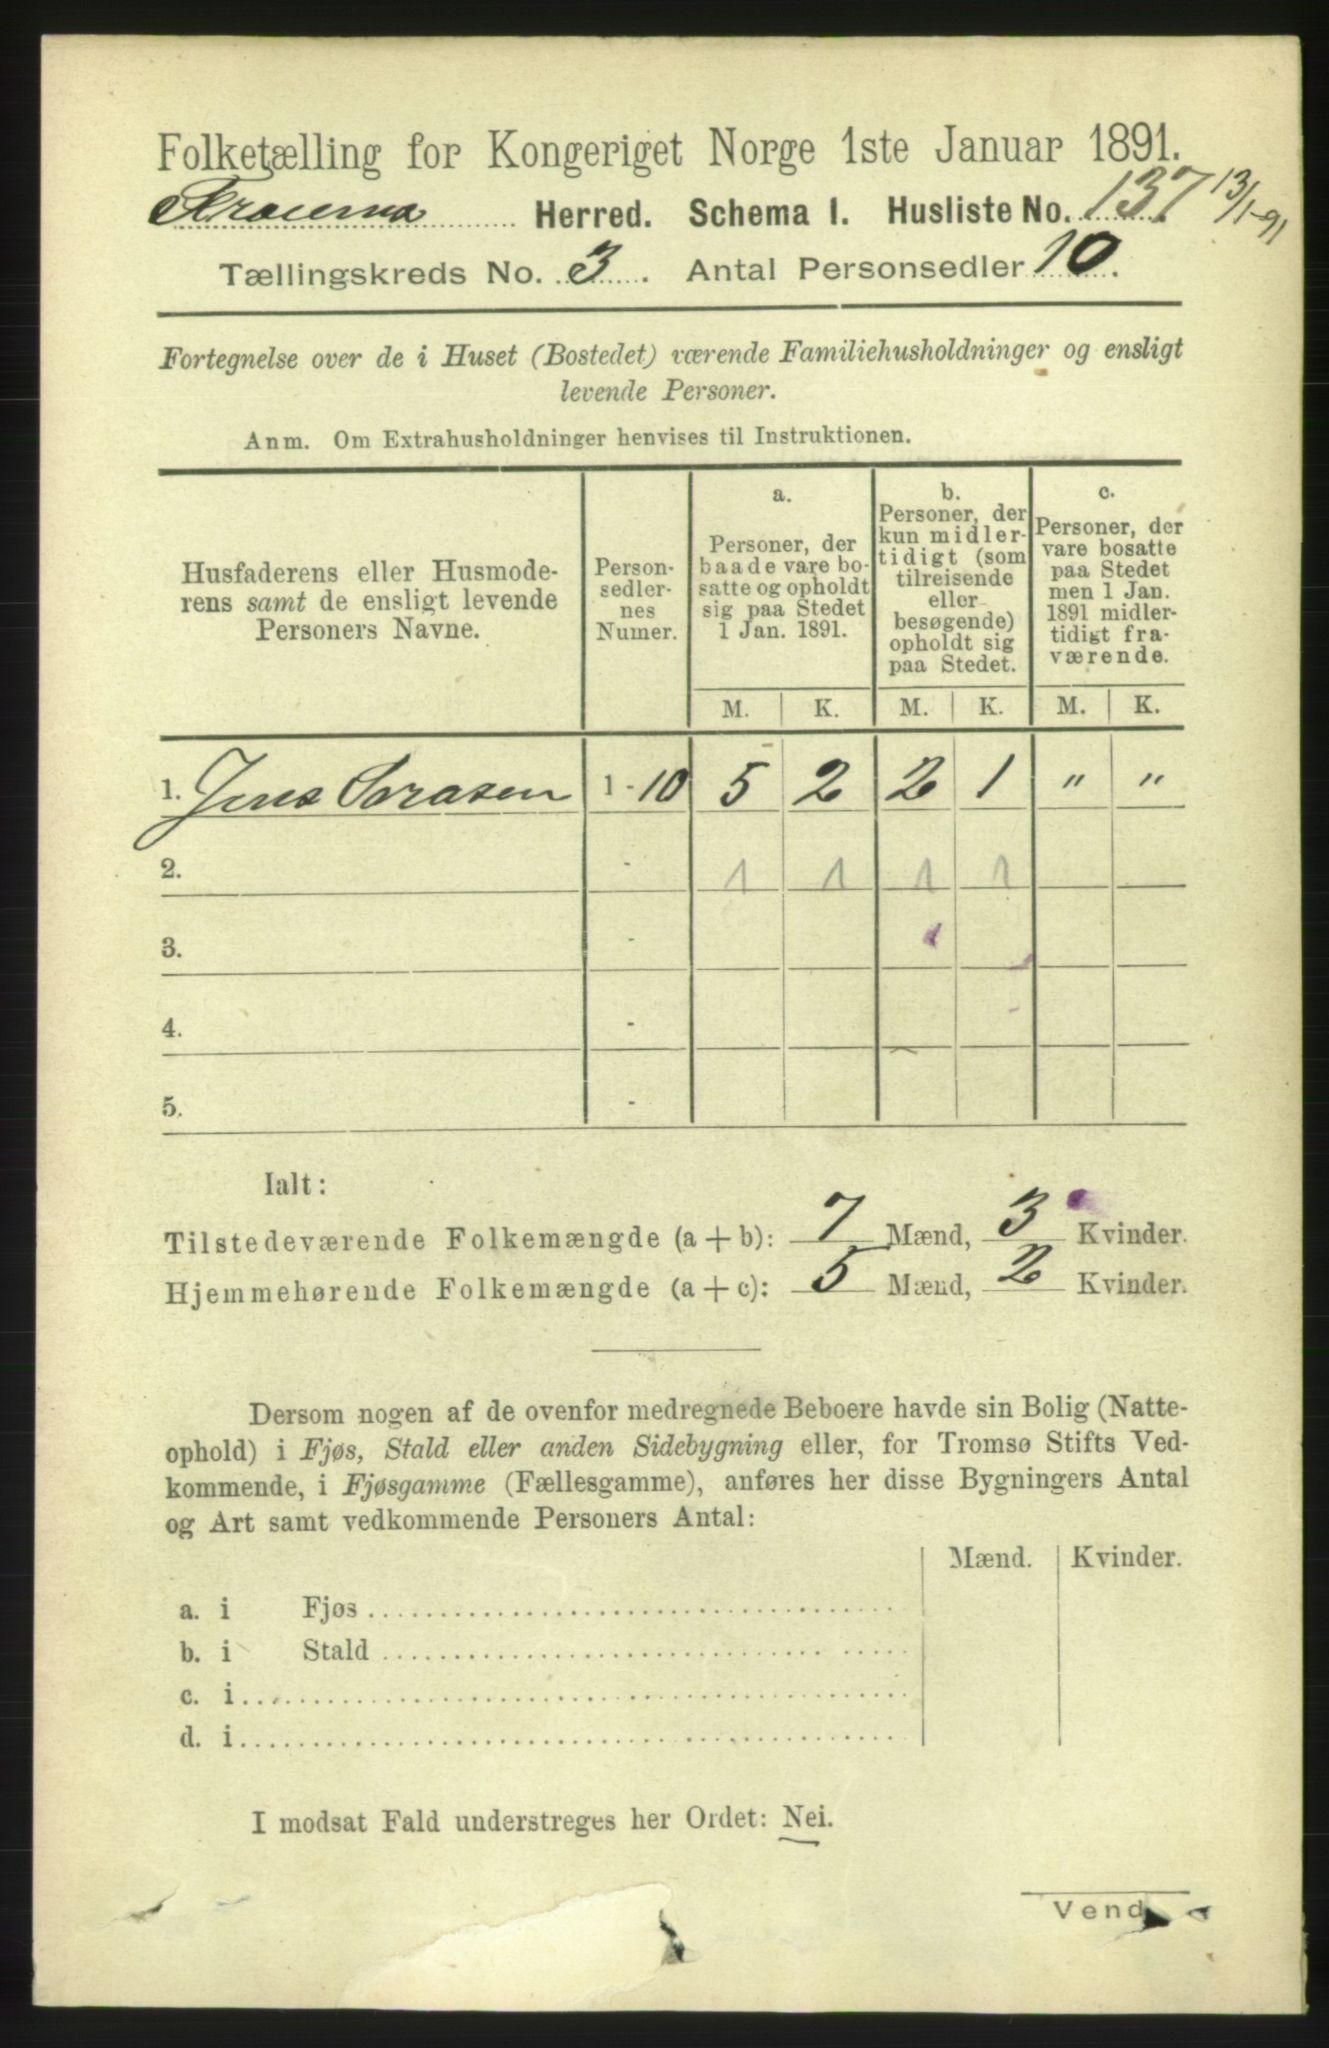 Folketælling for Kongeriget Norge 1ste Januar 1891.
Herred. Schema I. Husliste No. 137 13/1-91
Tællingskreds No. 3. Antal Personsedler 10.
Fortegnelse over de i Huset (Bostedet) værende Familiehusholdninger og ensligt
levende Personer.
Anm. Om Extrahusholdninger henvises til Instruktionen.
Husfaderens eller Husmode-
rens samt de ensligt levende
Personers Navne.
Person-
sedler-
nes
Numer.
a.
Personer, der
baade vare bo-
satte og opholdt
sig paa Stedet
1 Jan. 1891.
b.
Personer, der
kun midler-
tidigt (som
tilreisende
eller
besøgende)
opholdt sig
paa Stedet.
c.
Personer, der
vare bosatte
paa Stedet
men 1 Jan.
1891 midler-
tidigt fra-
værende.
M. K. M. K. M. K.
1. Jens 1-10 5 2 2 1 " "
2. - 1 1 1 1
3. -
4. -
5. -
Ialt:
Tilstedeværende Folkemængde (a+b): 7 Mænd, 3 Kvinder.
Hjemmehørende Folkemængde (a+c): 5 Mænd, 2 Kvinder.
Dersom nogen af de ovenfor medregnede Beboere havde sin Bolig (Natte-
ophold) i Fjøs, Stald eller anden Sidebygning eller, for Tromsø Stifts Ved-
kommende, i Fjøsgamme (Fællesgamme), anføres her disse Bygningers Antal
og Art samt vedkommende Personers Antal:
Mænd. Kvinder.
a. i Fjøs
b. i Stald
c. i
d. i
I modsat Fald understreges her Ordet: Nei.
Vend